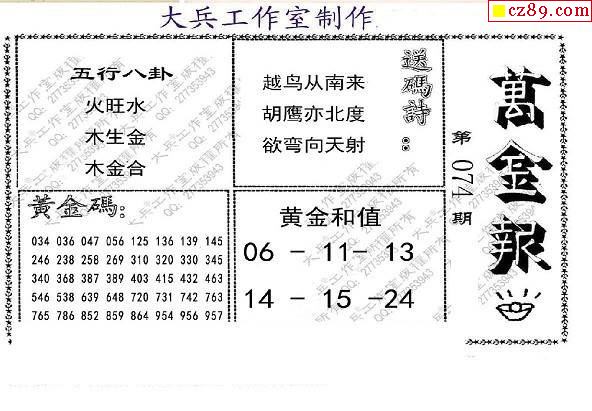 大兵工作室制作
cz89.com
五行八卦
火旺水
木生金
木金合
送碼詩：
越鸟从南来
胡鹰亦北度
欲弯向天射
萬金報
第074期
黃金碼：
034 036 047 056 125 136 139 145
246 238 258 269 310 320 330 345
340 368 387 389 403 415 432 463
546 538 639 648 720 731 742 763
765 786 852 859 864 954 956 957
黄金和值
06 - 11- 13
14 - 15 -24
大兵工作室版权所有
QQ: 277353943